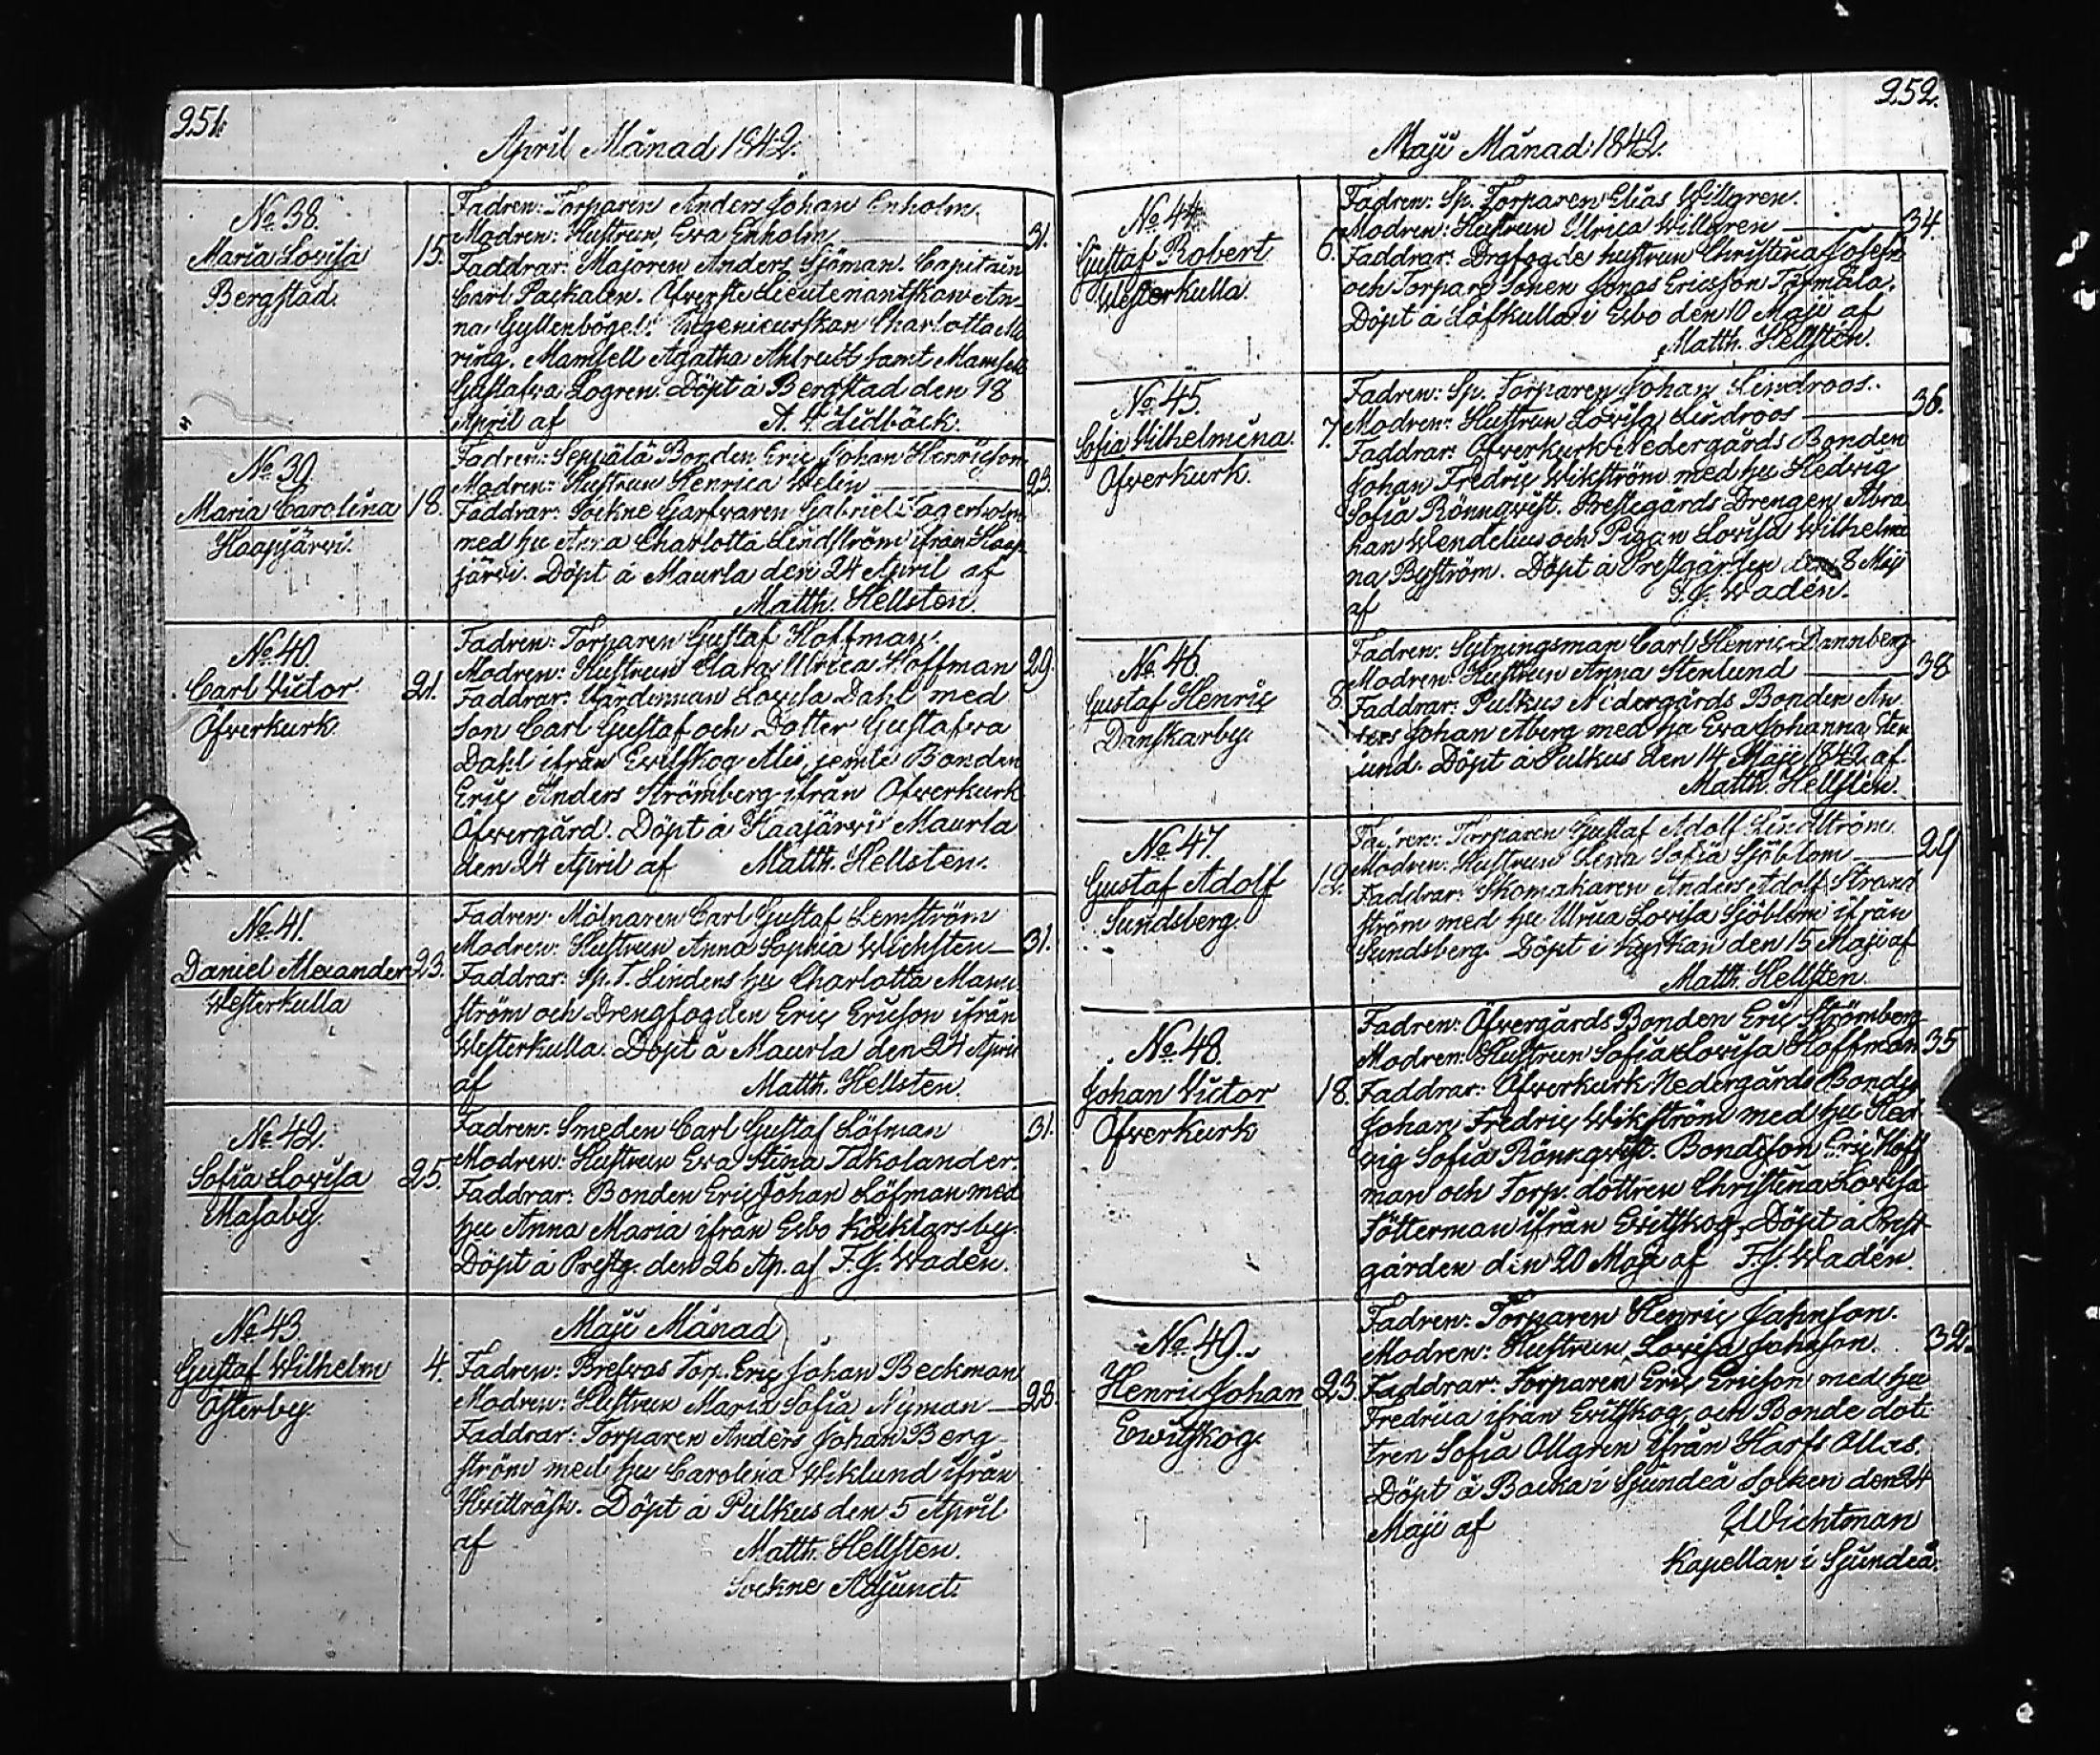 251.
April Månad 1842.
No 38.
Maria Lovisa
Bergstad.
15.
Fadren: Torparen Anders Johan Enholm.
Modren: Hustrun Eva Enholm
31.
Faddrar: Majoren Anders Sjöman. Capitain
Carl Packalen. Öfverste Lieutenantskan An-
na Gyllenbögel. Ingenieurskan Charlotta
ring. Mamsell Agatha Ahlrust samt Mamsell
Gustafva Logren. Döpt å Bergstad den 18
April af A. V. Lidböck.
No 39.
Maria Carolina
Haapjärvi.
18.
Fadren: Seppälä Bonden Eric Johan Henricson
Modren: Hustrun Henrica Welin
23.
Faddrar: Sockne Garfvaren Gabriel Fagerholm
med hu Anna Charlotta Lindström ifrån Haap
järvi. Döpt å Maurla den 24 April af
Matth. Hellsten
No 40.
Carl Victor
Öfverkurk.
21.
Fadren: Torparen Gustaf Hoffman.
Modren: Hustrun Clara Ulrica Hoffman
29.
Faddrar: Värdinnan Lovisa Dahl med
son Carl Gustaf och Dotter Gustafva
Dahl ifrån Evitskog Alis, jemte Bonden
Eric Anders Strömberg ifrån Öfverkurk
Öfvergård. Döpt å Haajärvi Maurla
den 24 April af Matth. Hellsten.
No 41.
Daniel Alexander
Westerkulla
23.
Fadren: Mölnaren Carl Gustaf Lemström
Modren: Hustrun Anna Sophia Wichsten
31.
Faddrar: Sp. T. Lindens hu Charlotta Mann
ström och Drengfogden Eric Ericson ifrån
Westerkulla. Döpt å Maurla den 24 April
af Matth. Hellsten.
No 42.
Sofia Lovisa
Masaby.
25.
Fadren: Smeden Carl Gustaf Löfman
31.
Modren: Hustrun Eva Stina Takolander.
Faddrar: Bonden Eric Johan Löfman med
hu Anna Maria ifrån Esbo Köklarsby.
Döpt å Prestg. den 26 Ap. af F. G. Wadén.
Maji Månad
No 43.
Gustaf Wilhelm
Österby.
4.
Fadren: Brefvas Torp. Eric Johan Beckman
Modren: Hustrun Maria Sofia Nyman
28.
Faddrar: Torparen Anders Johan Berg
ström med hu Carolina Wiklund ifrån
Hvitträsk. Döpt å Pulkus den 5 April
af Matth. Hellsten.
Sockne Adjunct.
252.
Maji Månad 1842.
No 44
Gustaf Robert
Westerkulla.
6.
Fadren: Sp. Torparen Elias Willgren.
Modren: Hustrun Ulrica Willgren
34.
Faddrar: Drgfogde hustrun Christina Josefs
och Torpare Sonen Jonas Ericsson Tormäla.
Döpt å Löfkulla i Esbo den 10 Maji af
Matth. Hellsten.
No 45.
Sofia Wilhelmina.
Öfverkurk.
7.
Fadren: Sp. Torparen Johan Lindroos.
Modren: Hustrun Lovisa Lindroos
36.
Faddrar: Öfverkurk Nedergårds Bonden
Johan Fredric Wikström med hu Hedvig
Sofia Rönnqvist. Prestegårds Drengen Abra
ham Wendelius och Pigan Lovisa Wilhelmi
na Byström. Döpt å Prestgården den 8 Maji
af F. G. Wadén.
No 46.
Gustaf Henric
Danskarby.
8.
Fadren: Sytningsman Carl Henric Dannberg.
Modren: Hustrun Anna Stenlund
38
Faddrar: Pulkus Nedergårds Bonden An
ders Johan Åberg med hu Eva Johanna Sten
lund. Döpt å Pulkus den 14 Maji 1842 af.
Matth. Hellsten.
No 47.
Gustaf Adolf
Sundsberg.
12.
Fadren: Torparen Gustaf Adolf Lindström
Modren: Hustrun Lena Sofia Sjöblom
29
Faddrar: Skomakaren Anders Adolf Strand
ström med hu Ulrica Lovisa Sjöblom ifrån
Sundsberg. Döpt i kyrkan den 15 Maji af
Matth. Hellsten.
No 48.
Johan Victor
Öfverkurk
18.
Fadren: Öfvergårds Bonden Eric Strömberg
Modren: Hustrun Sofia Lovisa Hoffman
35
Faddrar: Öfverkurk Nedergårds Bonden
Johan Fredric Wikström med hu Hed
vig Sofia Rönnqvist. Bondeson Eric Hoff
man och Torp. dottren Christina Lovisa
Fötterman ifrån Evitskog. Döpt å Prest
gården den 20 Maji af F. G. Wadén.
No 49.
Henric Johan
Evitskog.
23.
Fadren: Torparen Henric Johnson.
Modren: Hustrun Lovisa Johnson.
32.
Faddrar: Torparen Eric Ericson med hu
Fredrica ifrån Evitskog, och Bonde dot
tren Sofia Ollgren ifrån Harfs Ollas.
Döpt å Backa i Sjundeå Socken den 24
Maji af Wichtman
Kapellan i Sjundeå.